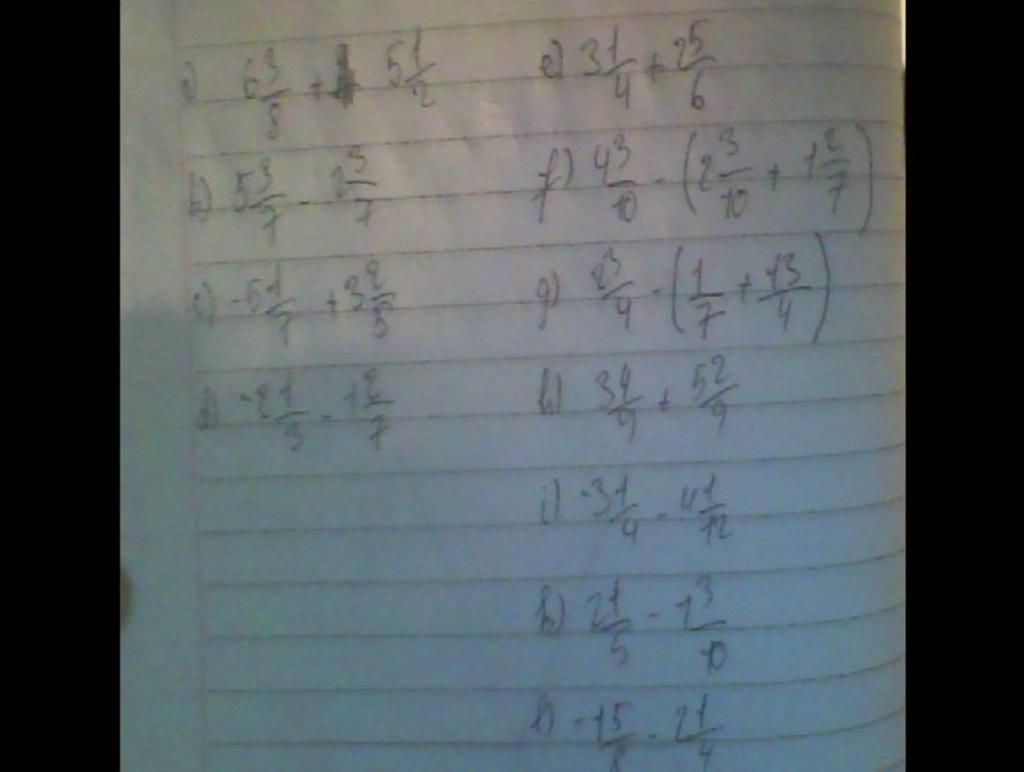 a) 6 3/8 + 5 1/2
b) 5 3/7 - 2 3/7
c) -5 1/7 + 3 2/5
d) -2 1/3 - 1 2/7
e) 3 1/4 + 2 5/6
f) 4 3/10 - (2 3/10 + 1 2/7)
g) 2 3/4 - (1/7 + 13/4)
h) 3 4/9 + 5 2/9
i) -3 1/4 - 4 1/12
k) 2 1/5 - 1 3/10
l) -1 5/8 - 2 1/4